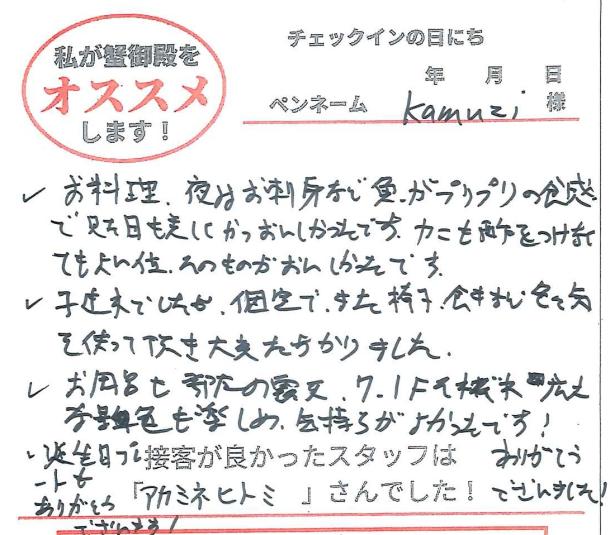 私が蟹御殿を
オススメ
します!
チェックインの日にち
年 月 日
ペンネーム kamuzi 様
✓ お料理、夜はお刺身など魚がプリプリの食感
で見た目も楽しくかつおいしかったです。カニも酢をつけなく
てもよい位、そのものがおいしかったです。
✓ 子連れでしたが、個室で、また椅子、食事など色々気
を使って頂き大変たすかりました。
✓ お風呂も
景色も楽しめ、気持ちがよかったです!
✓ 誕生日プレ
ートも
ありがとう
ございます!
接客が良かったスタッフは
「アカミネヒトミ 」さんでした!
ありがとう
ございました!